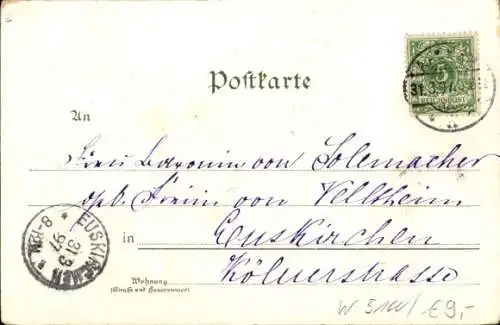 Postkarte
5
REICHSPOST
31.3.97
An
Frau Baronin von Solemacher
geb. Freiin von Veltheim
in Euskirchen
Kölnerstrasse
EUSKIRCHEN
31/3
97
8-12N
Wohnung
(Straße und Hausnummer)
€9,-